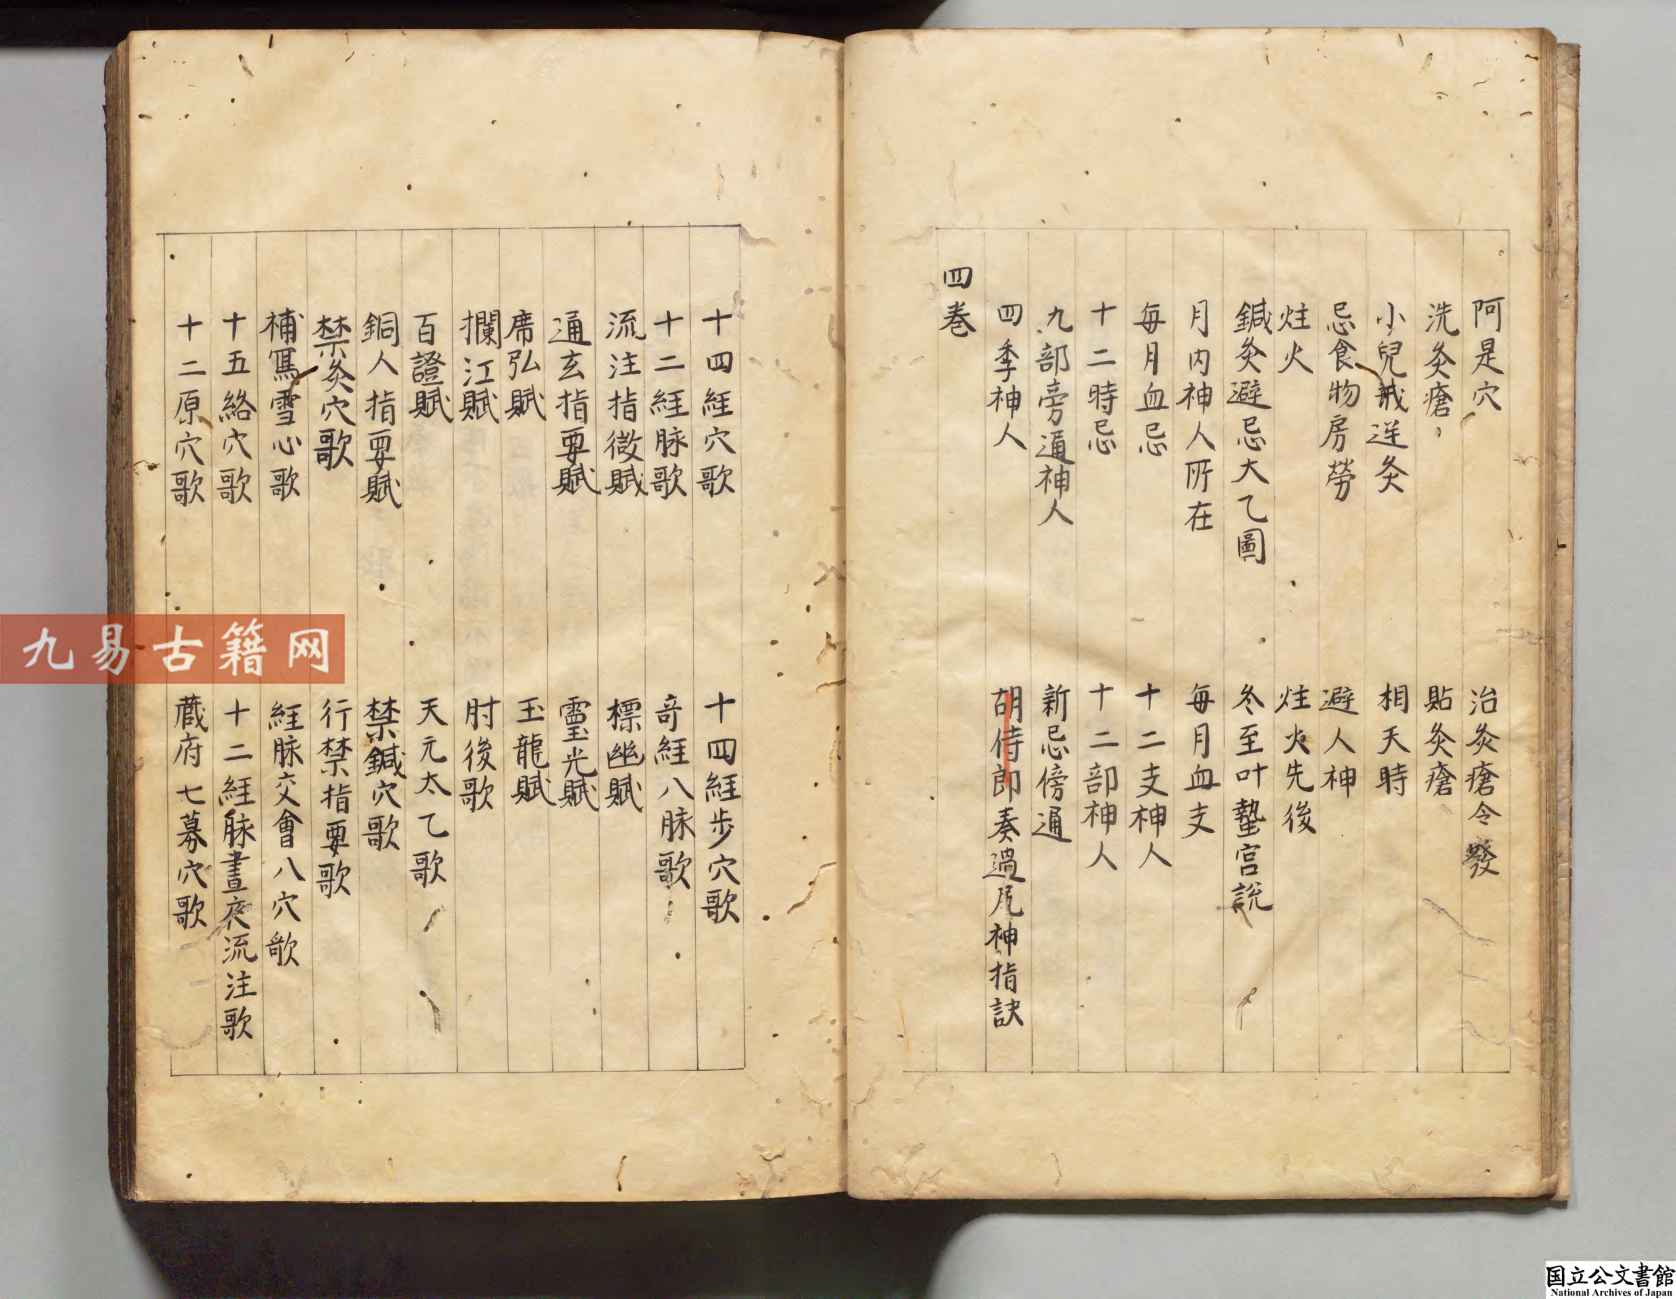 阿是穴　治灸瘡令發
洗灸瘡　貼灸瘡
小兒戒逆灸　相天時
忌食物房勞　避人神
炷火　炷火先後
鍼灸避忌大乙圖　冬至叶蟄宮説
月内神人所在　每月血支
每月血忌　十二支神人
十二時忌　十二部神人
九部旁通神人　新忌傍通
四季神人　胡侍郎奏過尻神指訣
四卷
十四経穴歌　十四経步穴歌
十二経脉歌　竒経八脉歌
流注指微賦　標幽賦
通玄指要賦　靈光賦
席弘賦　玉龍賦
攔江賦　肘後歌
百證賦　天元太乙歌
銅人指要賦　禁鍼穴歌
禁灸穴歌　行禁指要歌
補寫雪心歌　経脉交會八穴歌
十五絡穴歌　十二経脉晝夜流注歌
十二原穴歌　藏府七募穴歌
九易古籍网
国立公文書館
National Archives of Japan